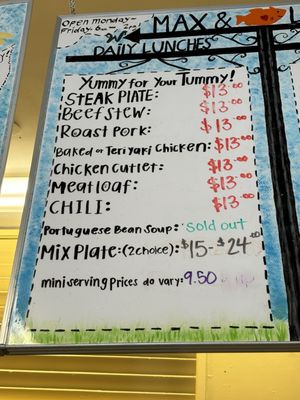 Open Monday-
Friday, 6am - 2pm!
MAX & L
DAILY LUNCHES
Yummy for Your Tummy!
STEAK PLATE: $13.00
Beef Stew: $13.00
Roast Pork: $13.00
Baked or Teriyaki Chicken: $13.00
Chicken Cutlet: $13.00
Meatloaf: $13.00
CHILI: $13.00
Portuguese Bean Soup: Sold out
Mix Plate: (2 choice): $15-$24.00
mini serving prices do vary: 9.50